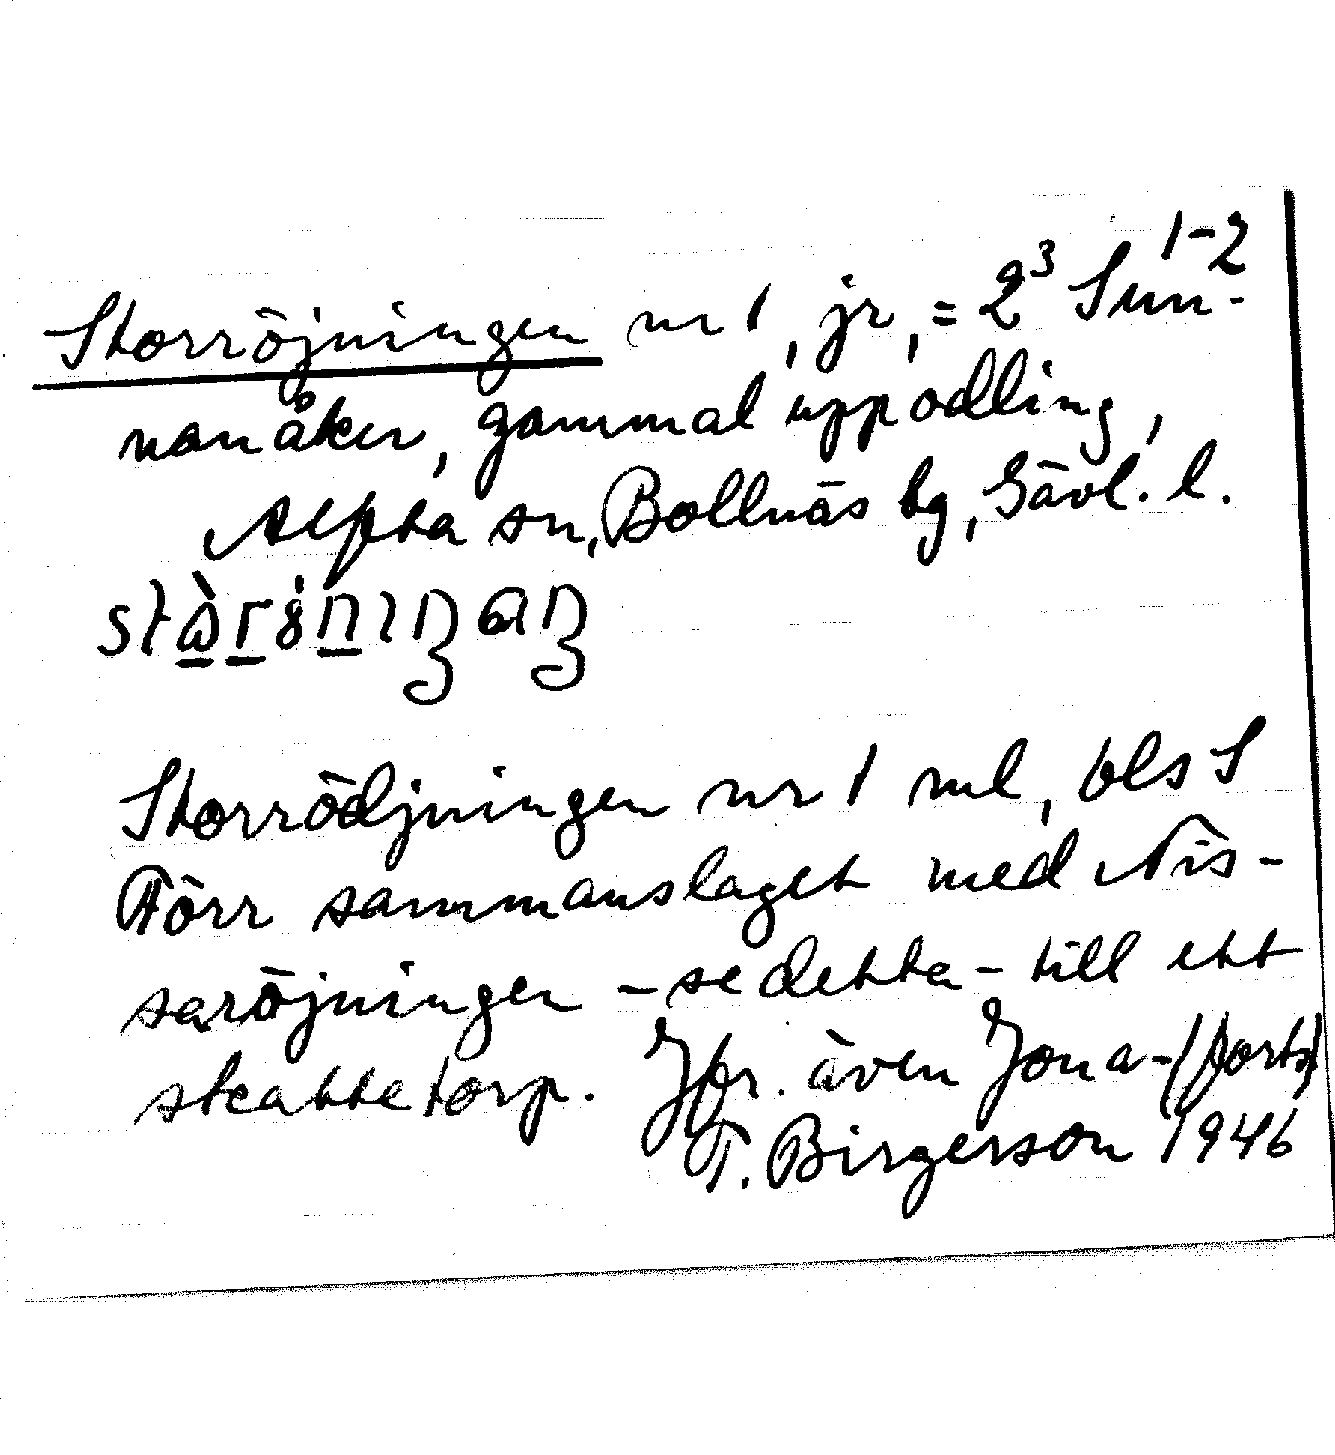 1-2
Storröjningen nr 1, jr, = 2³ Sun-
nanåker, gammal uppodling,
Alfta sn, Bollnäs bg, Gävl. l.
Storrödjningen nr 1 ml, bls S
Förr sammanslaget med Nis-
saröjningen - se detta - till ett
skattetorp. Jfr. även Jona- (forts)
T. Birgerson 1946